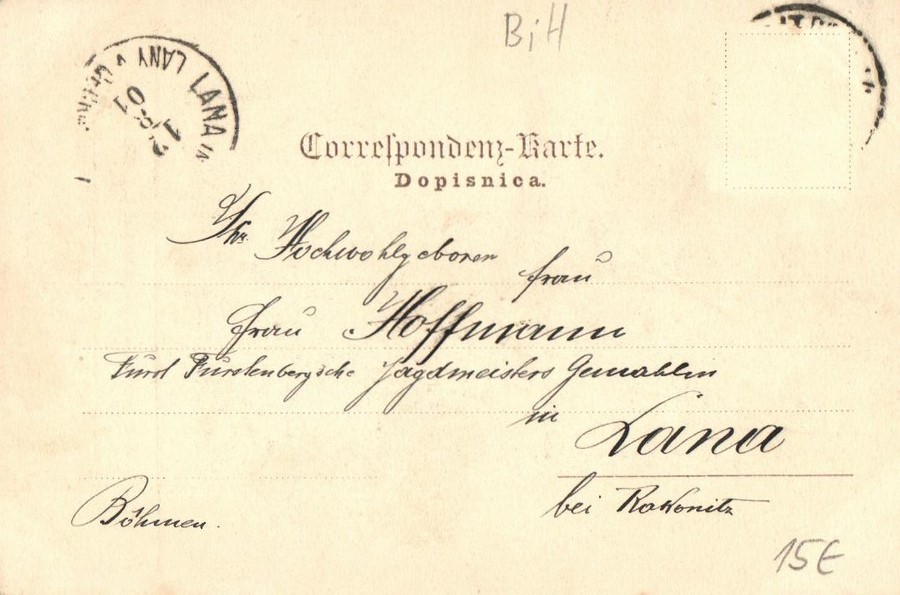 BiH
LANY v LANA in
1 8 01
Correspondenz-Karte.
Dopisnica.
Ihr Hochwohlgeboren
frau
Frau Hoffmann
Fürst Fürstenbergsche Jagdmeisters Gemahlin
in Lana
bei Rakonitz
Böhmen.
15€